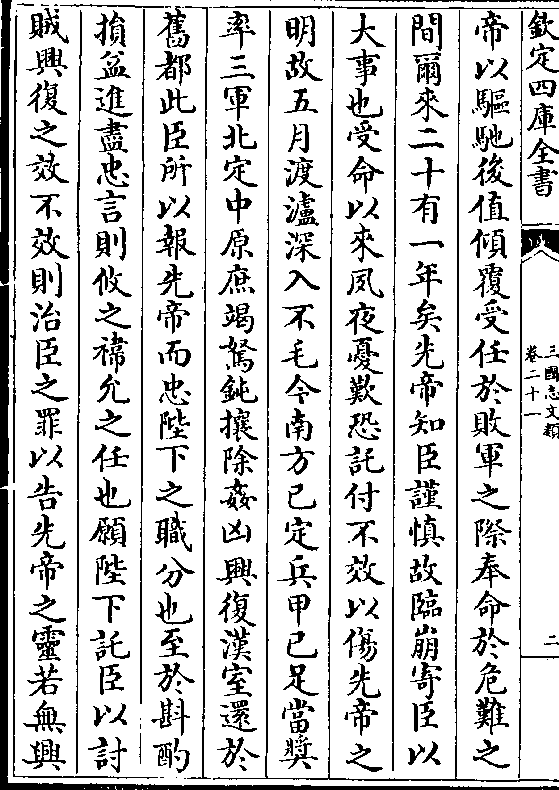 欽定四庫全書
三國志文類
卷二十一
二
帝以驅馳後值傾覆受任於敗軍之際奉命於危難之
間爾來二十有一年矣先帝知臣謹慎故臨崩寄臣以
大事也受命以來夙夜憂歎恐託付不效以傷先帝之
明故五月渡瀘深入不毛今南方已定兵甲已足當獎
率三軍北定中原庶竭駑鈍攘除姦凶興復漢室還於
舊都此臣所以報先帝而忠陛下之職分也至於斟酌
損益進盡忠言則攸之禕允之任也願陛下託臣以討
賊興復之效不效則治臣之罪以告先帝之靈若無興